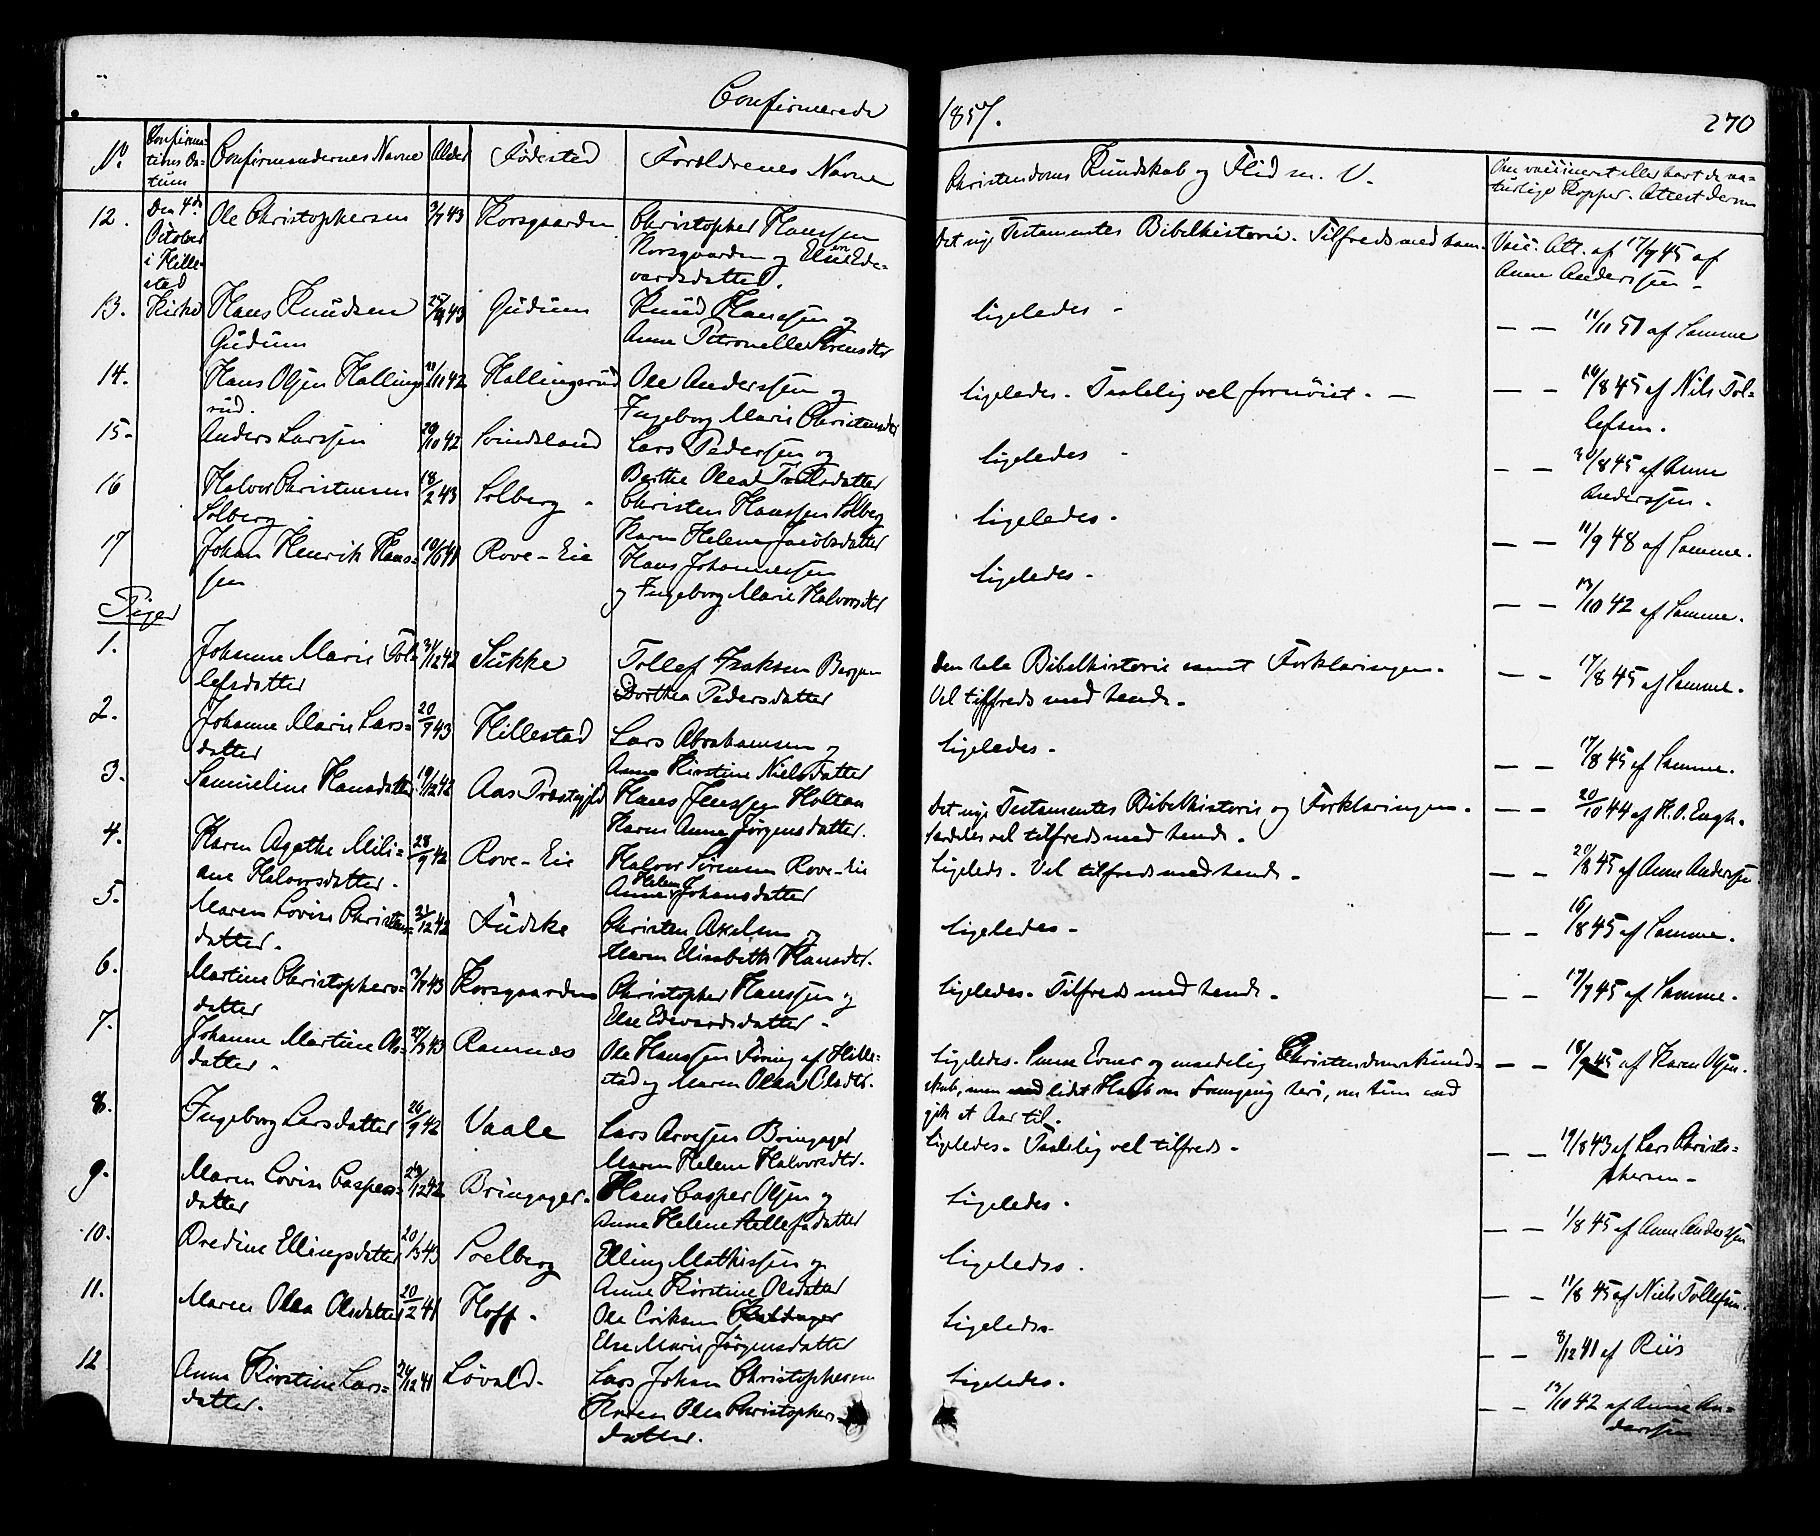 Confirmerede
1857.
270
No
Confirmationens Datum
Confirmandernes Navne
Alder
Fødested
Forældrenes Navne
Christendoms Kundskab og Flid m. V.
Om vaccineret eller havt de naturlige Kopper. Attest derom
12. Den 4de October i Hillestad Kirke
Ole Christophersen 3/7 43 Korsgaarden
Christopher Hanssen
Korsgaarden og Else Edevardsdatter.
Det nye Testamentes Bibelhistorie. Tilfreds med ham.
Vacc. Att. af 17/9 45 af
Anne Anderssen -
13. Hans Knudsen Gudum 43 Gudum
Knud Hanssen og
Anne Petronelle Sørensdtr
Ligeledes -
— — 11/11 51 af Samme
14. Hans Olsen Hallingrud. 42 Hallingsrud
Ole Anderssen og
Ingeborg Marie Christensdtr
Ligeledes. Taalelig vel fornøiet. —
— — 16/8 45 af Nils Tollefsen.
15. Anders Larssen 20/10 42 Svindsland
Lars Pedersen og
Berthe Olea datter
Ligeledes -
— — 30/8 45 af Anne
Anderssen.
16 Halvor Christensen Solberg 18/2 43 Solberg -
Christen Hanssen Solberg
Karen Helene Jacobsdatter
Ligeledes.
— — 11/9 48 af Samme.
17 Johan Henrik Hanssen 41 Rove-Eie
Hans Johannessen
og Ingeborg Marie Halvorsdtr
Ligeledes -
— — 13/10 42 af Samme.
Piger
1. Johanne Marie Tollefsdatter 31/12 42 Sukke
Tollef Isaksen Bergan
Dorthea Pedersdatter
Den hele Bibelhistorie samt Forklaringen.
Vel tilfreds med hende.
— — 17/8 45 af Samme.
2. Johanne Marie Larsdatter 20/9 43 Hillestad
Lars Abrahamsen og
Anne Kirstine Nielsdatter
Ligeledes -
— — 17/8 45 af Samme.
3. Samueline Hansdatter 19/12 42 Aas Præstegjeld
Hans Jenssen Holtan
Karen Anne Jørgensdatter.
Det nye Testamentes Bibelhistorie og Forklaringen.
Særdeles vel tilfreds med hende.
— — 20/10 44 af H. O. Engh.
4. Karen Agathe Miliane Halvorsdatter. 28/9 42 Rove-Eie
Halvor Sørensen Rove-Eie
Anne Helene Johansdatter
Ligeleds. Vel tilfreds med hende.
— — 29/8 45 af Anne Anderssen
5. Maren Lovise Christensdatter. 31/12 42 Fudske
Christen Axelsen og
Maren Elisabeth Hansdtr.
Ligeledes -
— — 16/8 45 af Samme.
6. Martine Christophersdatter 3/7 43 Korsgaarden
Christopher Hanssen og
Else Edevardsdatter -
Ligeledes. Tilfreds med hende.
— — 17/9 45 af Samme.
7. Johanne Martine Olsdatter. 43 Ramnæs
Ole Hanssen Føring af Hillestad og Maren Olea Olsdtr.
Ligeledes. Smaa Evner og maadelig Christendomskundskab, men lidet Haab om Fremgang heri, om hun end
gik et Aar til.
— — 18/9 45 af Karen Olsen.
8. Ingeborg Larsdatter 26/9 42 Vaale
Lars Arvesen Bringager
Maren Helene Halvorsdtr.
Ligeledes. Taalelig vel tilfreds.
— — 19/8 43 af Lars Christophersen -
9. Maren Lovise Caspersdatter 42 Bringager.
Hans Casper Olsen og
Anne Helene datter
Ligeledes.
— — 1/8 45 af Anne Anderssen
10. Dredine Ellingsdatter 20/3 43 Solberg
Elling Mathissen og
Anne Kirstine Olsdatter
Ligeledes.
— — 11/8 45 af Niels Tollefsen.
11. Maren Olea Olsdatter 20/12 41 Hoff.
Ole Eriksen
Else Marie Jørgensdatter
Ligeledes
— — 8/12 41 af Riis
12 Anne Kirstine Larsdatter. 26/12 41 Løvald.
Lars Johan Christophersen
Karen Olea Christophersdatter.
Ligeledes.
— — 13/10 42 af Anne Anderssen